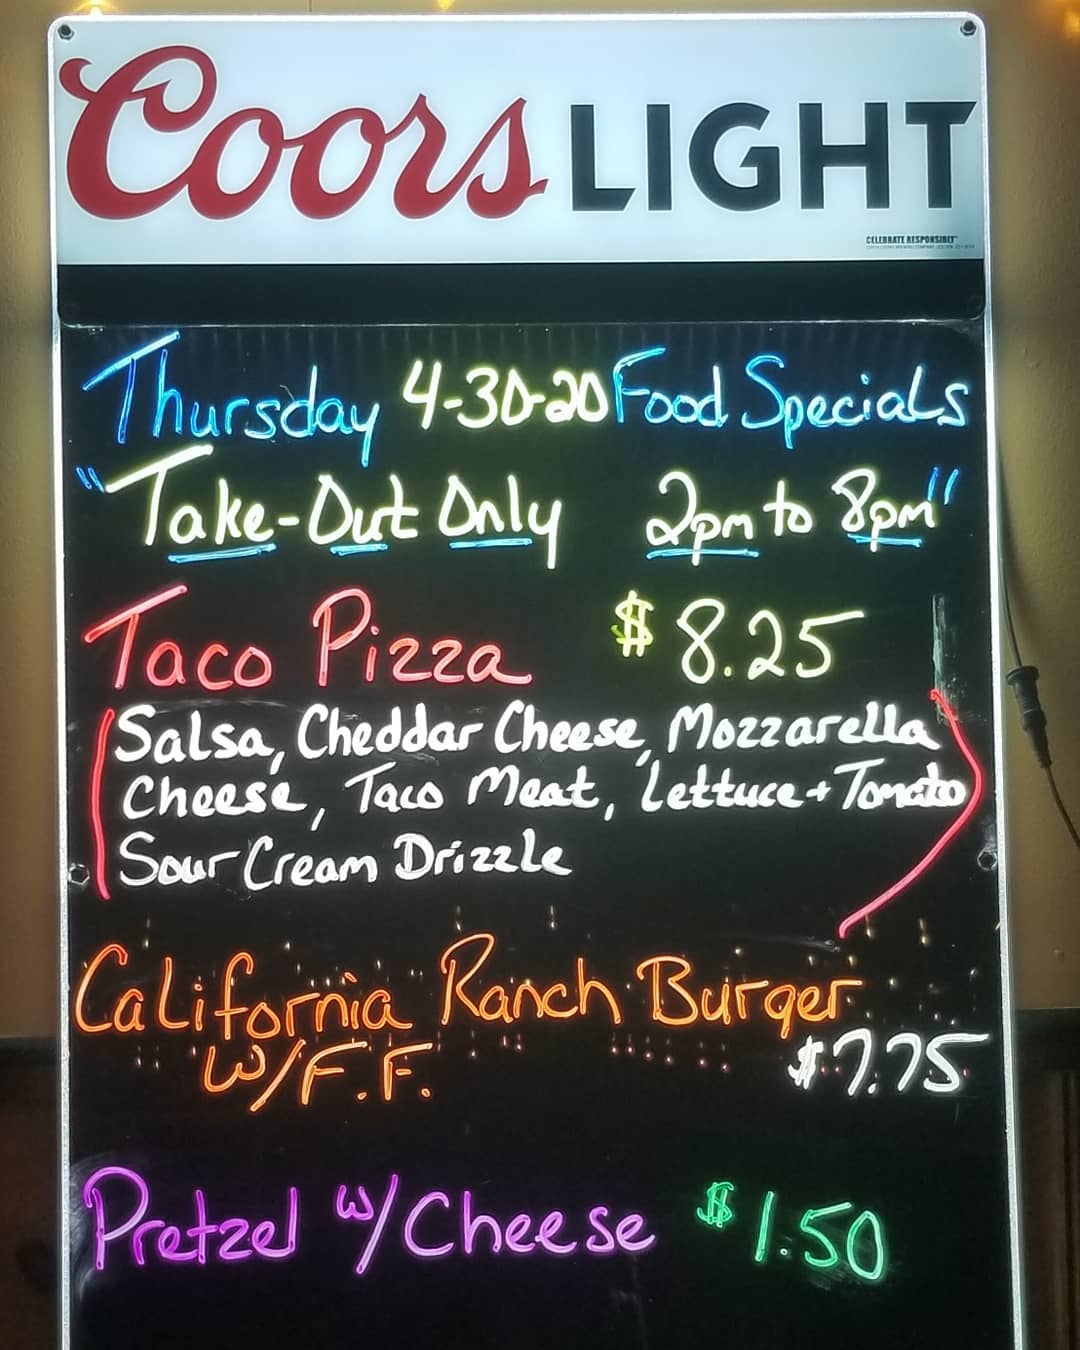 Coors LIGHT
CELEBRATE RESPONSIBLY
Thursday 4-30-20 Food Specials
"Take-Out Only 2pm to 8pm"
Taco Pizza $8.25
(Salsa, Cheddar Cheese, Mozzarella
Cheese, Taco Meat, Lettuce + Tomato
Sour Cream Drizzle)
California Ranch Burger
W/F.F. $7.75
Pretzel w/Cheese $1.50